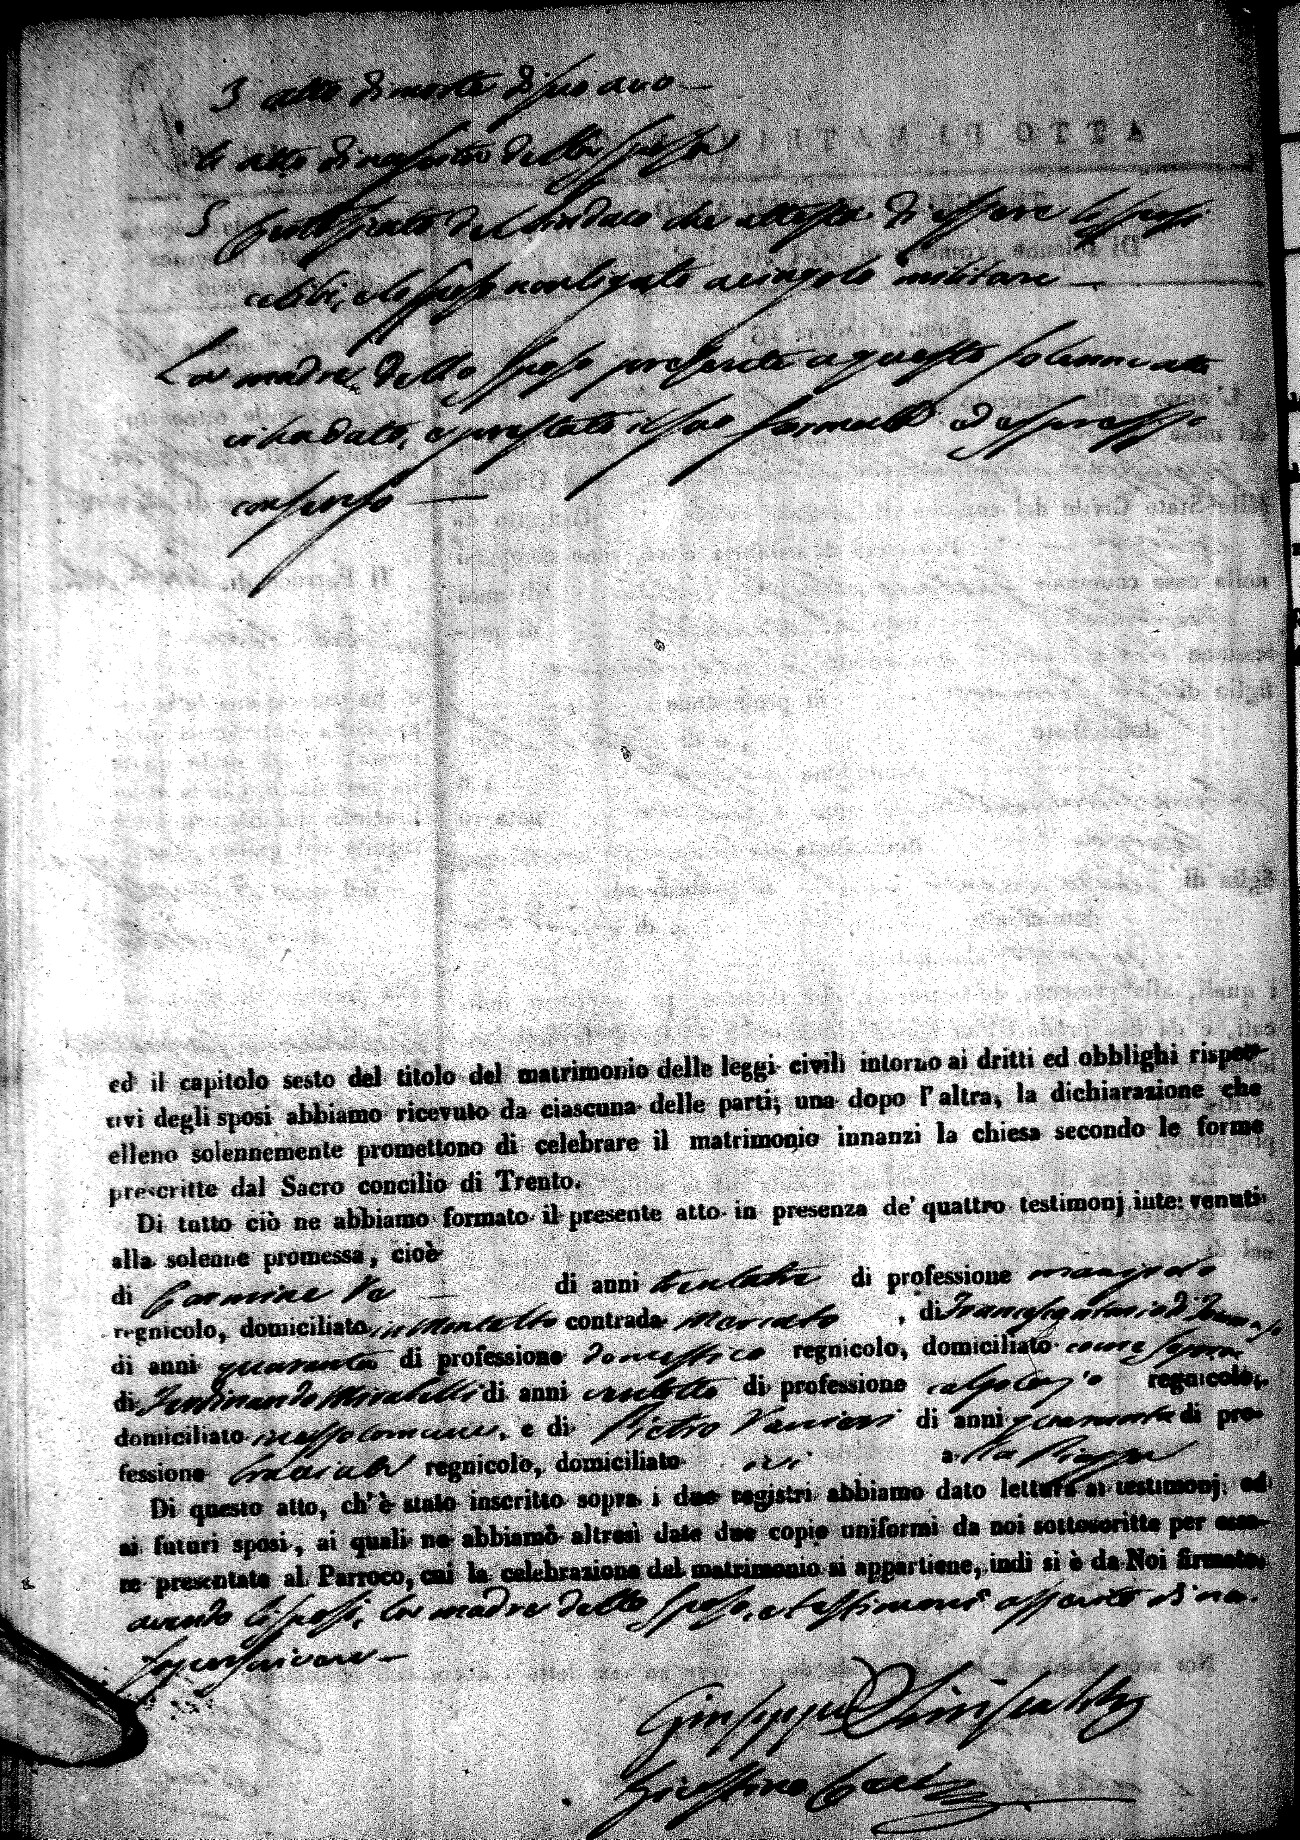 3 atto di morte di suo avo —
4 atto di nascita della sposa
5 Certificato del Sindaco che attesta di essere li sposi
celibi, e lo sposo non ligato a cingolo militare —
La madre dello sposo presente a questo solenne atto
ci ha dato, e prestato il suo formale ed espresso
consenso —
ed il capitolo sesto del titolo del matrimonio delle leggi civili intorno ai dritti ed obblighi rispet-
tivi degli sposi abbiamo ricevuto da ciascuna delle parti, una dopo l'altra, la dichiarazione che
elleno solennemente promettono di celebrare il matrimonio innanzi la chiesa secondo le forme
prescritte dal Sacro concilio di Trento.
Di tutto ciò ne abbiamo formato il presente atto in presenza de' quattro testimonj intervenuti
alla solenne promessa, cioè
di Carmine di anni trentatre di professione
regnicolo, domiciliato in Montalto contrada Mercato, di Francescantonio di
di anni quaranta di professione domestico regnicolo, domiciliato come sopra
di Ferdinando Mirabelli di anni ventotto di professione calzolajo regnicolo,
domiciliato in esso comune, e di Pietro di anni quaranta di pro-
fessione bracciale regnicolo, domiciliato ivi alla Piazza
Di questo atto, ch'è stato inscritto sopra i due registri abbiamo dato lettura ai testimonj, ed
ai futuri sposi, ai quali ne abbiamo altresì date due copie uniformi da noi sottoscritte per esse-
re presentate al Parroco, cui la celebrazione del matrimonio si appartiene, indi si è da Noi firmato,
avendo li sposi, la madre dello sposo, e testimoni asserito di non
saper scrivere —
Giuseppe
Giustino